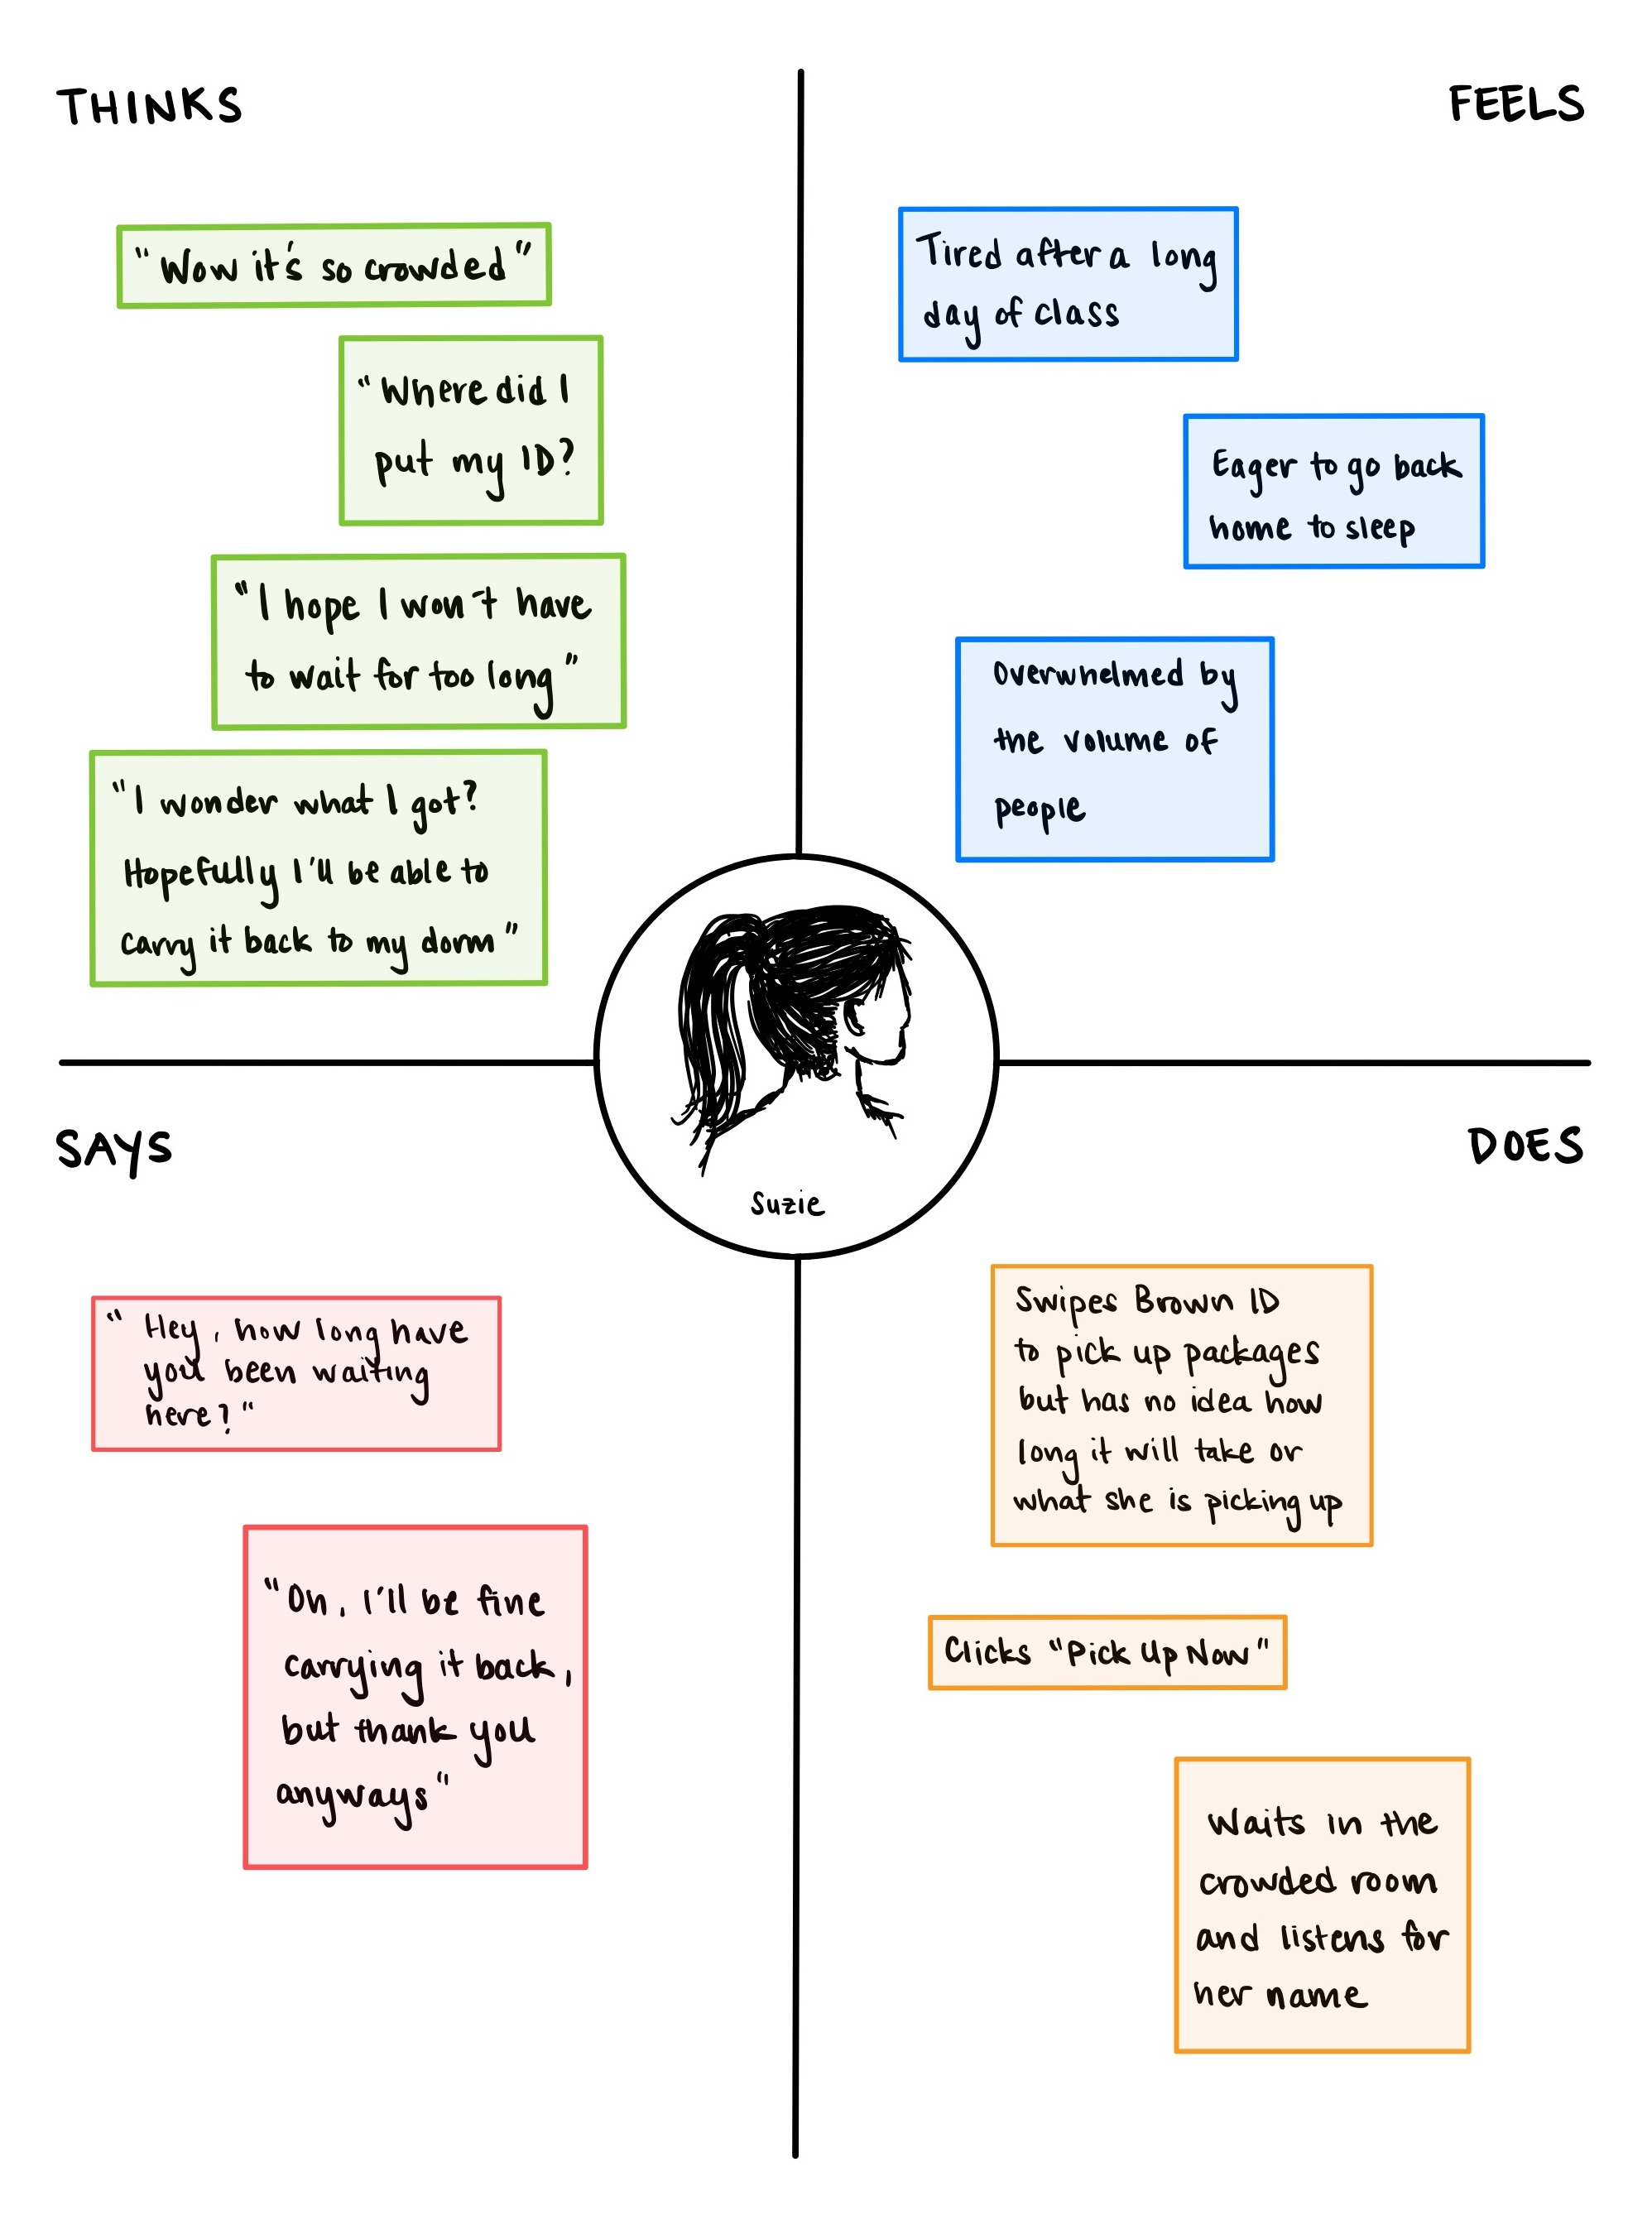 THINKS
"Wow it's so crowded"
"Where did I
put my ID?
"I hope I won't have
to wait for too long"
"I wonder what I got?
Hopefully I'll be able to
carry it back to my dorm"
FEELS
Tired after a long
day of class
Eager to go back
home to sleep
Overwhelmed by
the volume of
people
Suzie
SAYS
"Hey, how long have
you been waiting
here?"
"Oh, I'll be fine
carrying it back,
but thank you
anyways"
DOES
Swipes Brown ID
to pick up packages
but has no idea how
long it will take or
what she is picking up
Clicks "Pick Up Now"
Waits in the
crowded room
and listens for
her name